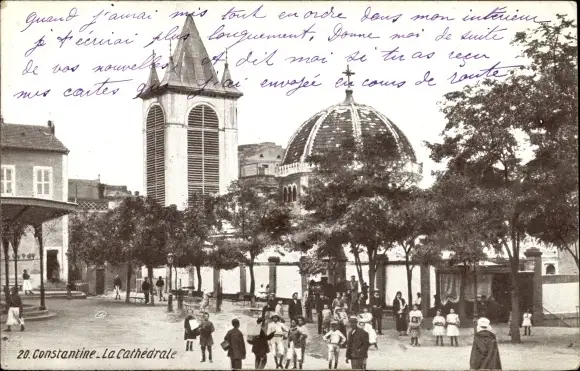 Quand j'aurai mis tout en ordre dans mon intérieur
je t'écrirai plus longuement, Donne moi de suite
de vos nouvelles et dit moi si tu as reçu
mes cartes que j'ai envoyée en cours de route
20. Constantine _ La Cathédrale